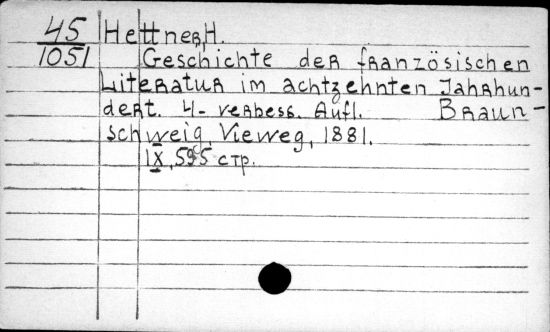 45
1051
Hettner, H.
Geschichte der französischen
Literatur im achtzehnten Jahrhun-
dert. 4- verbess. Aufl. Braun-
schweig, Vieweg, 1881.
IX, 595 стр.